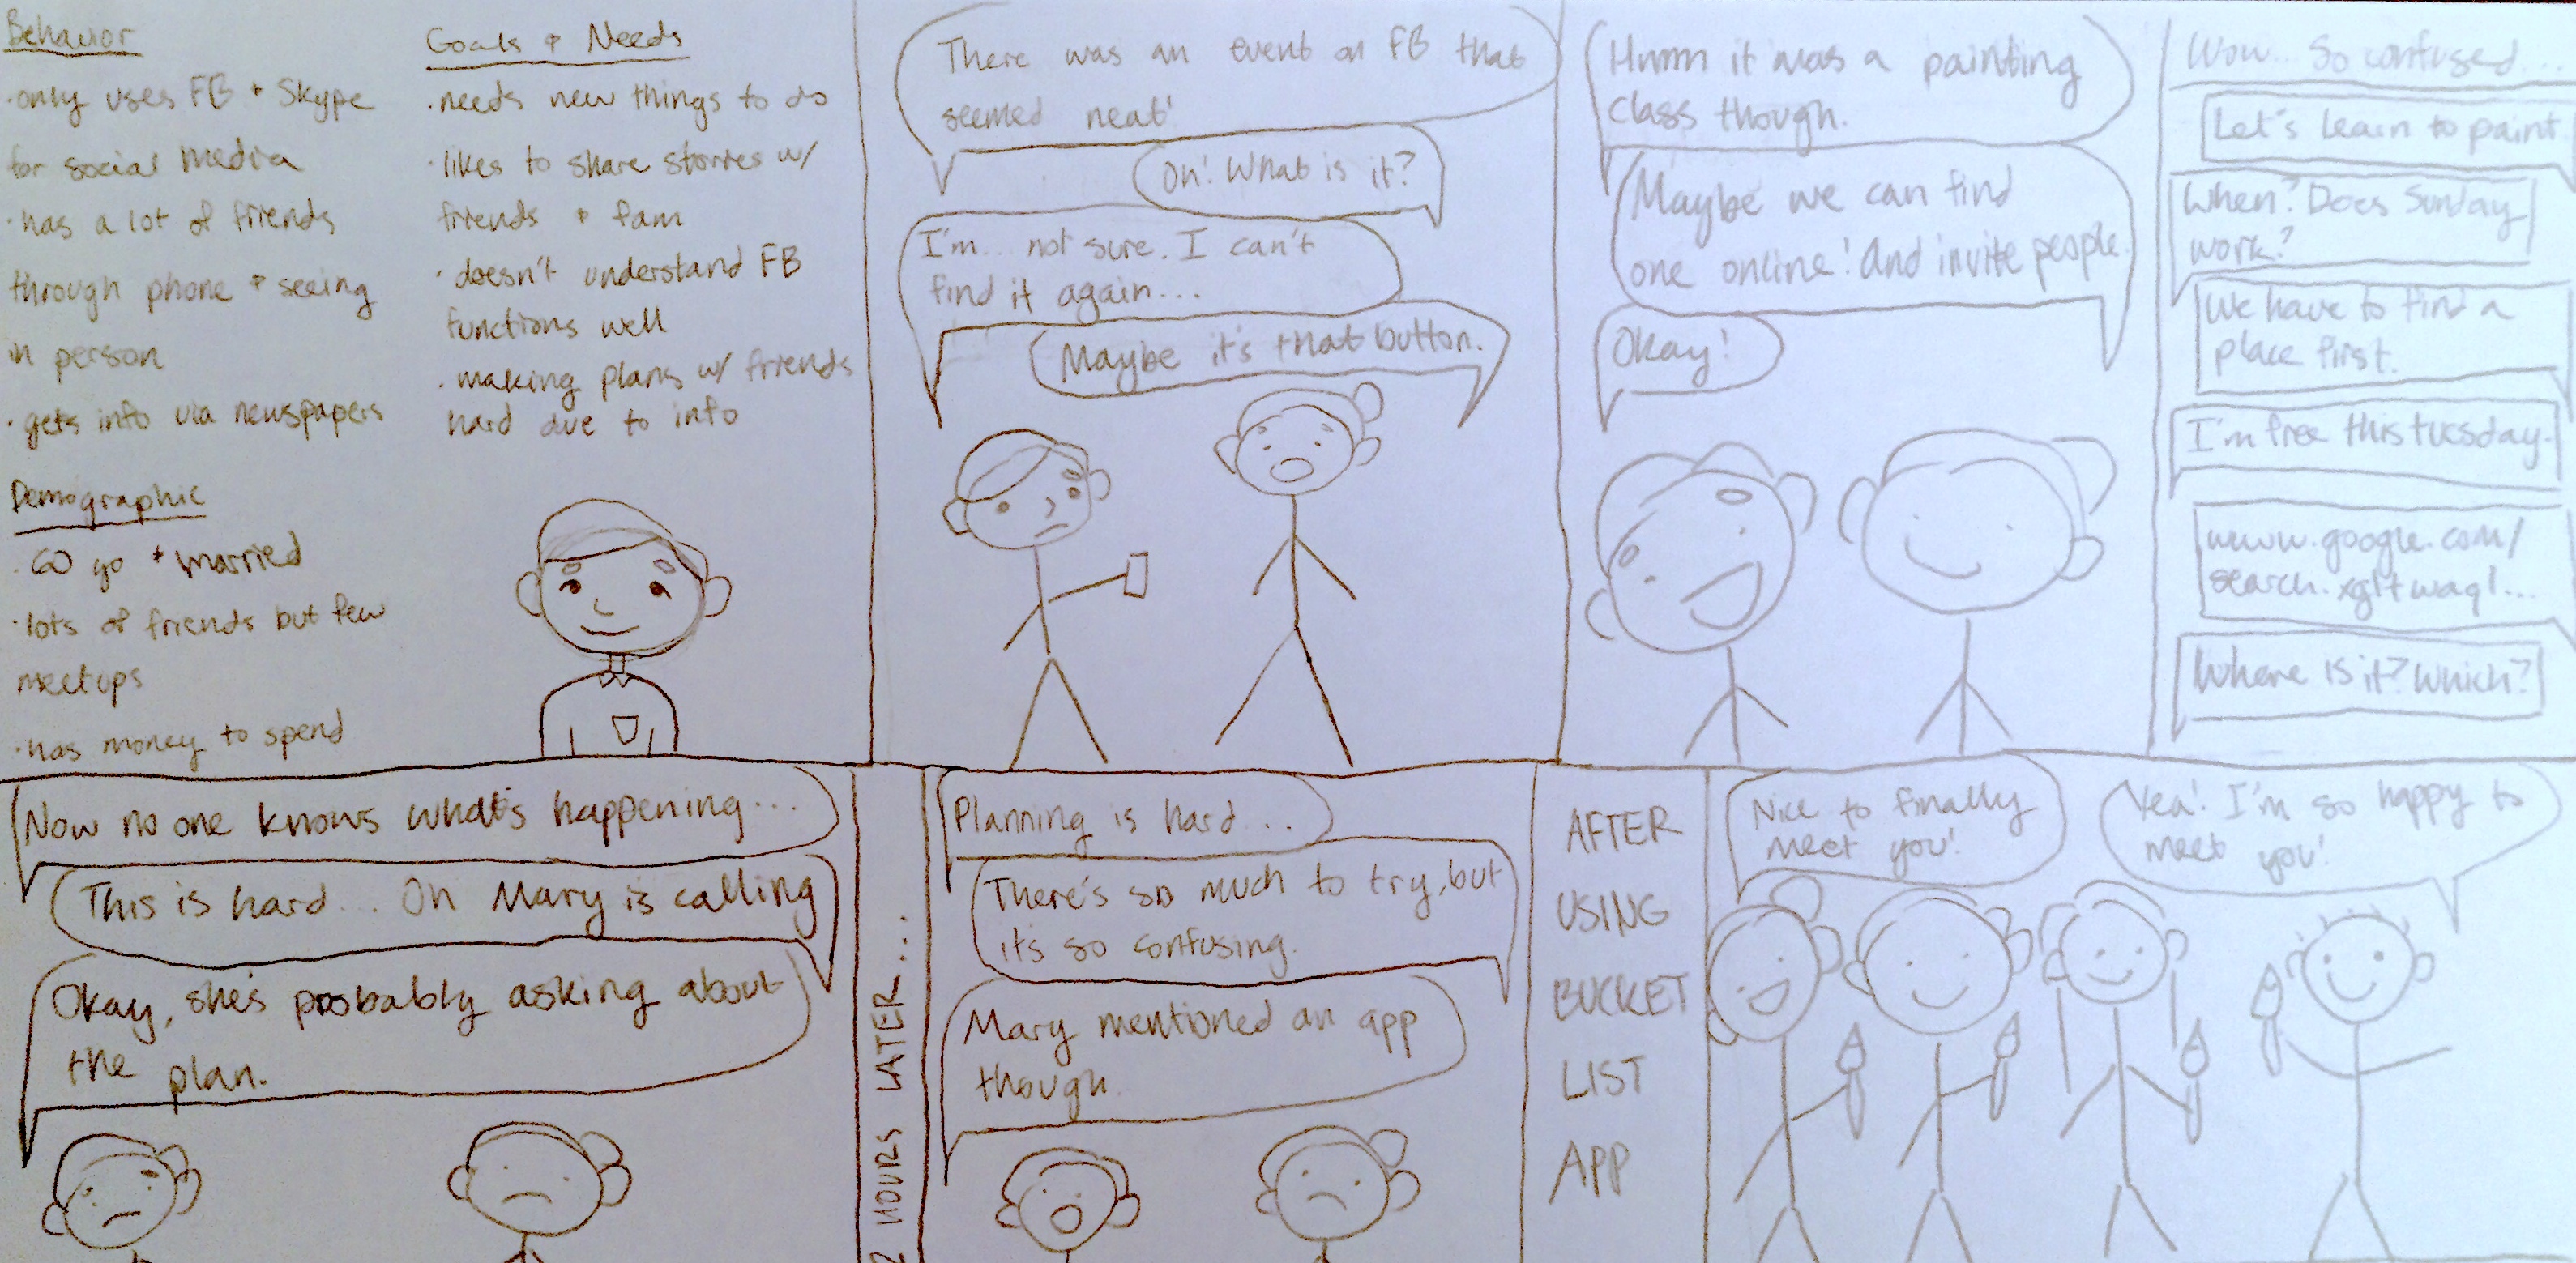 Behavior
·only uses FB + Skype
for social media
·has a lot of friends
through phone + seeing
in person
·gets info via newspapers
Demographic
·60 yo + married
·lots of friends but few
meetups
·has money to spend
Goals + Needs
·needs new things to do
·likes to share stories w/
friends + fam
·doesn't understand FB
functions well
·making plans w/ friends
hard due to info
There was an event on FB that
seemed neat!
Oh! What is it?
I'm... not sure. I can't
find it again...
Maybe it's that button.
Hmm it was a painting
class though.
Maybe we can find
one online! And invite people.
Okay!
Wow... So confused...
Let's learn to paint
When? Does Sunday
work?
We have to find a
place first.
I'm free this tuesday.
www.google.com/
search.xgftwaql...
Where is it? Which?
Now no one knows what's happening...
This is hard... Oh Mary is calling
Okay, she's probably asking about
the plan.
2 HOURS LATER...
Planning is hard...
There's so much to try, but
it's so confusing.
Mary mentioned an app
though.
AFTER
USING
BUCKET
LIST
APP
Nice to finally
meet you!
Yea! I'm so happy to
meet you!